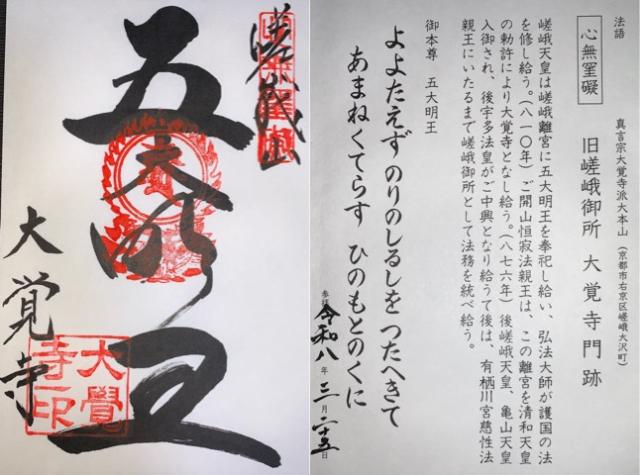 法語
心無罣礙
真言宗大覚寺派大本山(京都市右京区嵯峨大沢町)
旧嵯峨御所 大覚寺門跡
嵯峨天皇は嵯峨離宮に五大明王を奉祀し給い、弘法大師が護国の法
を修し給う。(八一〇年)ご開山恒寂法親王は、この離宮を清和天皇
の勅許により大覚寺となし給う。(八七六年)後嵯峨天皇、亀山天皇
入御され、後宇多法皇がご中興となり給うて後は、有栖川宮慈性法
親王にいたるまで嵯峨御所として法務を統べ給う。
御本尊 五大明王
よよたえず のりのしるしを つたへきて
あまねくてらす ひのもとのくに
令和八年三月二十五日
嵯峨山
五大明王
大覚寺
大覺寺印